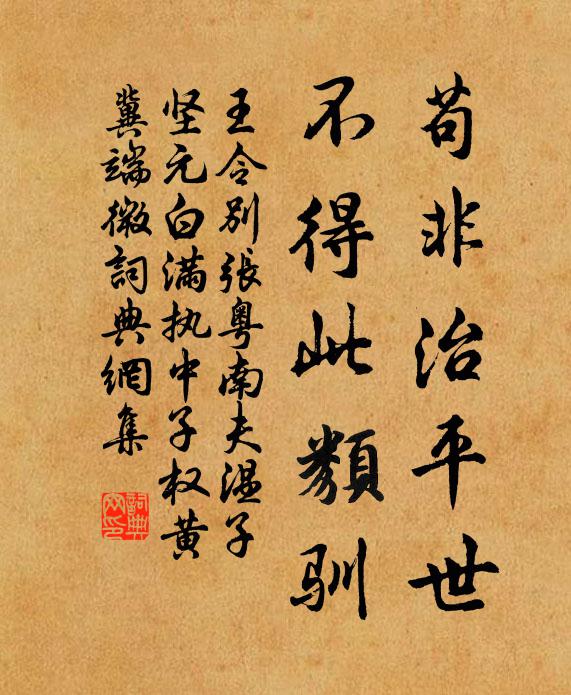 苟非治平世
不得此類馴
王令别張粤南夫温子
坚元白满执中子权黄
冀端微詞典網集
詞典網印